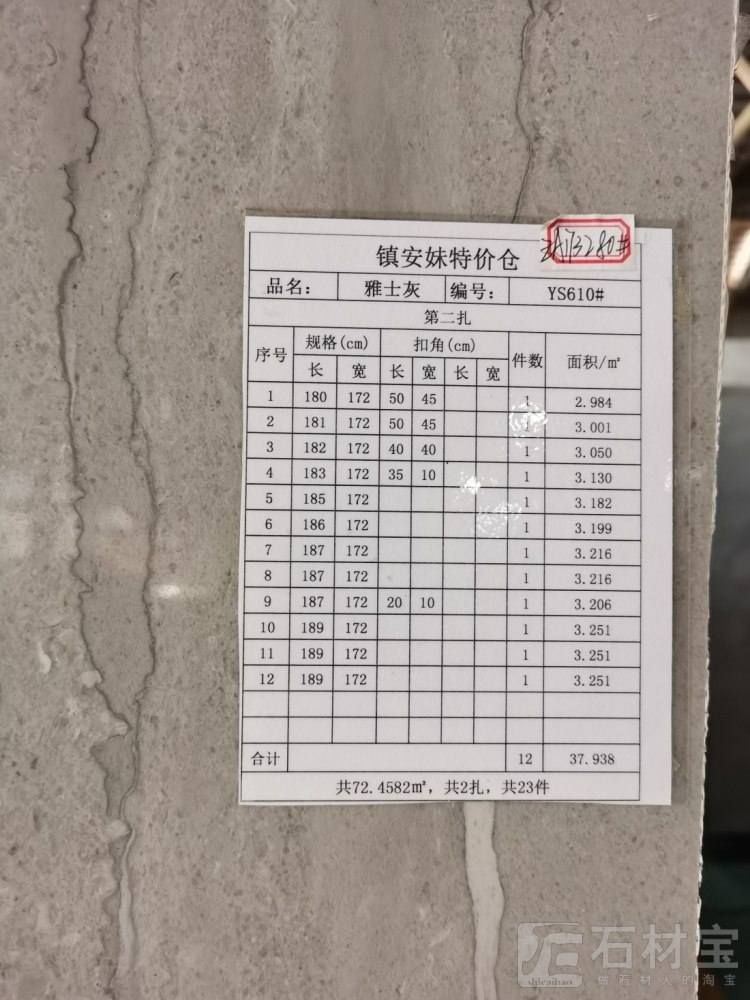 镇安妹特价仓
品名： 雅士灰 编号： YS610#
第二扎
序号 规格(cm) 扣角(cm) 件数 面积/㎡
长 宽 长 宽 长 宽
1 180 172 50 45 1 2.984
2 181 172 50 45 1 3.001
3 182 172 40 40 1 3.050
4 183 172 35 10 1 3.130
5 185 172 1 3.182
6 186 172 1 3.199
7 187 172 1 3.216
8 187 172 1 3.216
9 187 172 20 10 1 3.206
10 189 172 1 3.251
11 189 172 1 3.251
12 189 172 1 3.251
合计 12 37.938
共72.4582㎡，共2扎，共23件
石材宝
shicaibao
做石材人的淘宝